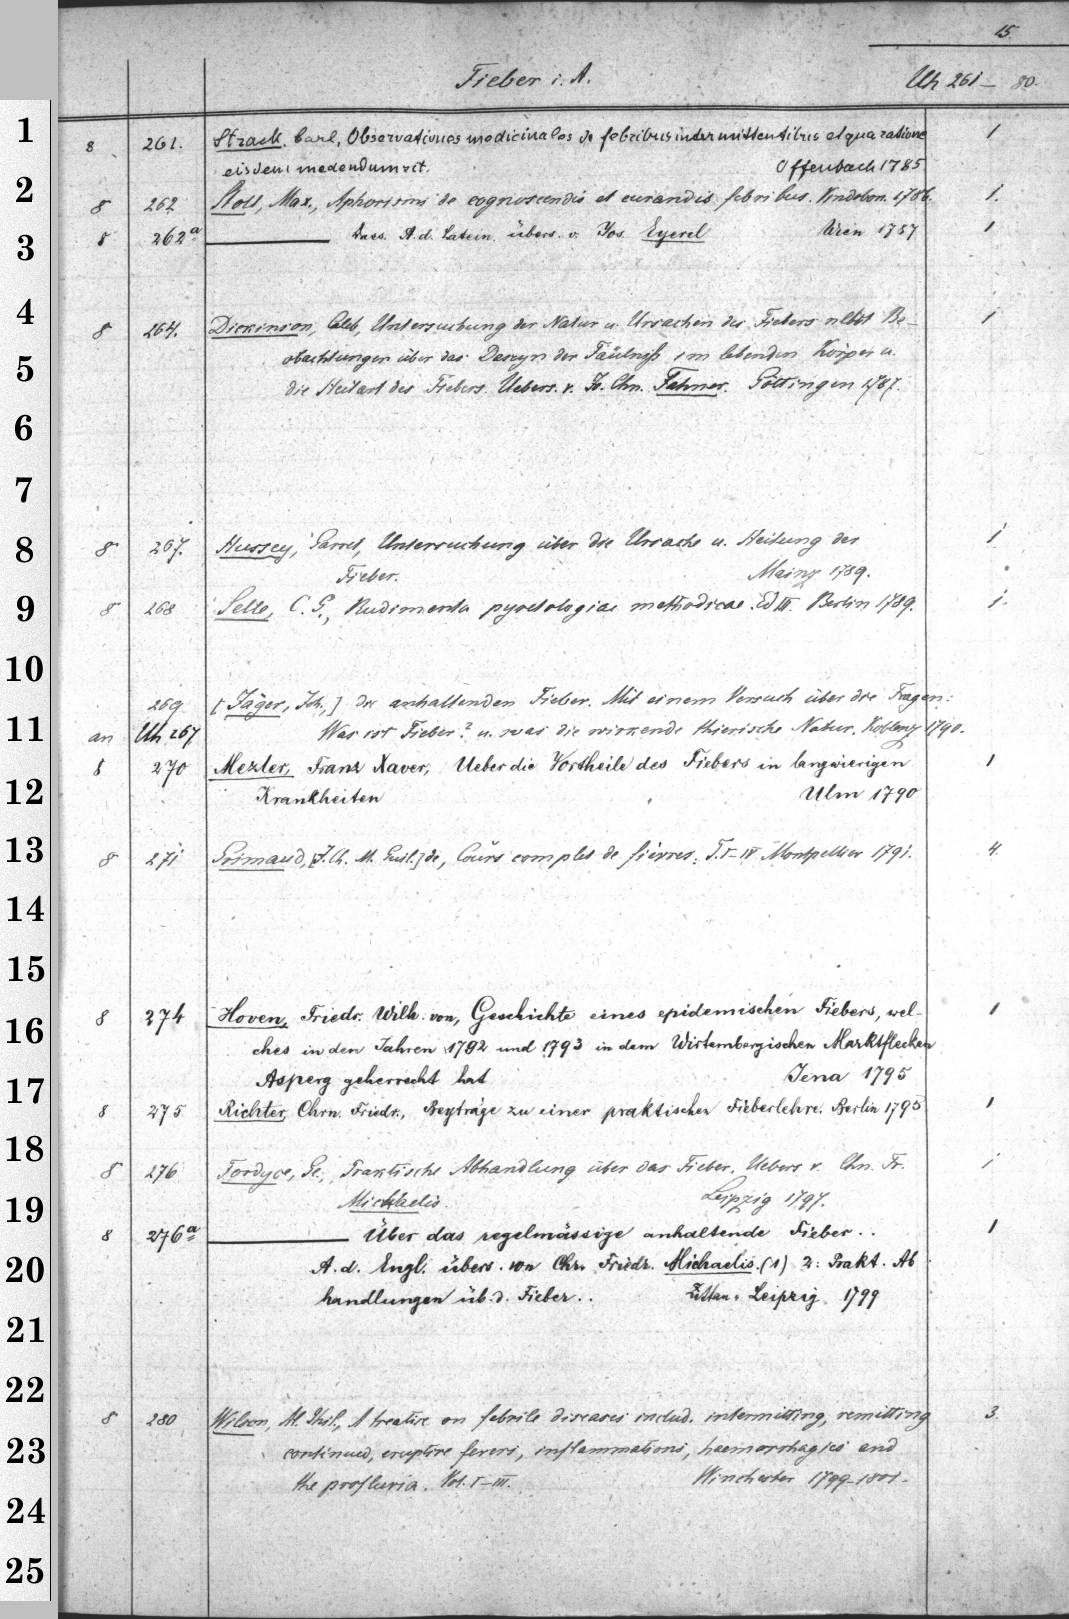 15
Fieber i. A. Uh 261 – 80.
1
8 261. Strack, Carl, Observationes medicinales de febribus intermittentibus et qua ratione 1
eisdem medendum sit. Offenbach 1785
2
8 262 Stoll, Max., Aphorismi de cognoscendis et curandis febribus. Vindobon. 1786. 1.
3
8 262a ——— Dass. A. d. Latein. übers. v. Jos. Eyerel Wien 1787 1
4
8 264. Dickinson, Caleb, Untersuchung der Natur u. Ursachen des Fiebers nebst Be- 1
obachtungen über das Daseyn der Fäulniß im lebenden Körper u.
5
die Heilart des Fiebers. Uebers. v. Jo. Chn. Fahner. Göttingen 1787.
6
7
8
8 267. Hussey, Garret, Untersuchung über die Ursache u. Heilung der 1
Fieber. Mainz 1789.
9
8 268 Selle, C. G., Rudimenta pyretologiae methodicae. Ed III. Berlin 1789. 1.
10
269 [Jäger, Joh.,] die anhaltenden Fieber. Mit einem Versuch über die Fragen:
11
an Uh 267 Was ist Fieber? u. was die wirkende thierische Natur. Koblenz 1790.
8 270 Mezler, Franz Xaver, Ueber die Vortheile des Fiebers in langwierigen 1
12
Krankheiten Ulm 1790
13
8 271 Grimaud, [J. Ch. M. Guil.] de, Cours complet de fièvres. T. I–IV Montpellier 1791. 4.
14
15
16
8 274 Hoven, Friedr. Wilh. von, Geschichte eines epidemischen Fiebers, wel- 1
ches in den Jahren 1792 und 1793 in dem Wirtembergischen Marktflecken
17
Asperg geherrscht hat Jena 1795
8 275 Richter, Chrn. Friedr., Beyträge zu einer praktischen Fieberlehre. Berlin 1795 1
18
8 276 Fordyce, Ge., Praktische Abhandlung über das Fieber. Uebers v. Chn. Fr. 1
19
Michaelis. Leipzig 1797.
8 276a ——— Über das regelmässige anhaltende Fieber .. 1
20
A. d. Engl. übers. von Chr. Friedr. Michaelis. (1) 2: Prakt. Ab
handlungen üb. d. Fieber .. Zittau u. Leipzig 1799
21
22
8 280 Wilson, A. Phil., A treatise on febrile diseases includ. intermitting, remitting 3
23
continued, eruptive fevers, inflammations, haemorrhagies and
the profluvia. Vol. I–III. Winchester 1799–1801.
24
25